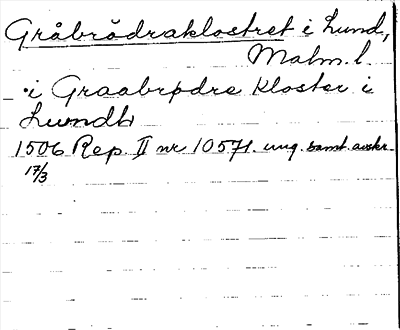 Gråbrödraklostret i Lund,
Malm. l.
i Graabrødre Kloster i
Lundh
1506 Rep. II nr 10571. ung. samt. avskr.
17/3